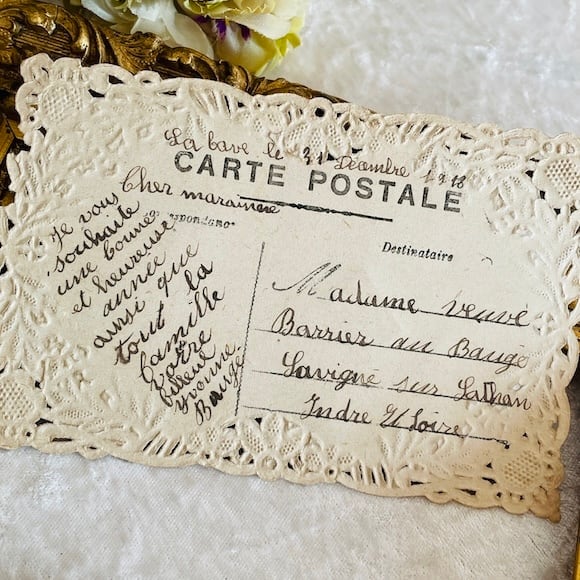 La bave le 31 Décembre 1918
CARTE POSTALE
Cher marainne
Correspondance
Je vous
souhaite
une bonne
et heureuse
année
ainsi que
tout la
famille
Yvonne
Baugé
Destinataire
Madame veuve
Barrier au Baugé
Savigné sur Lathan
Indre & Loire